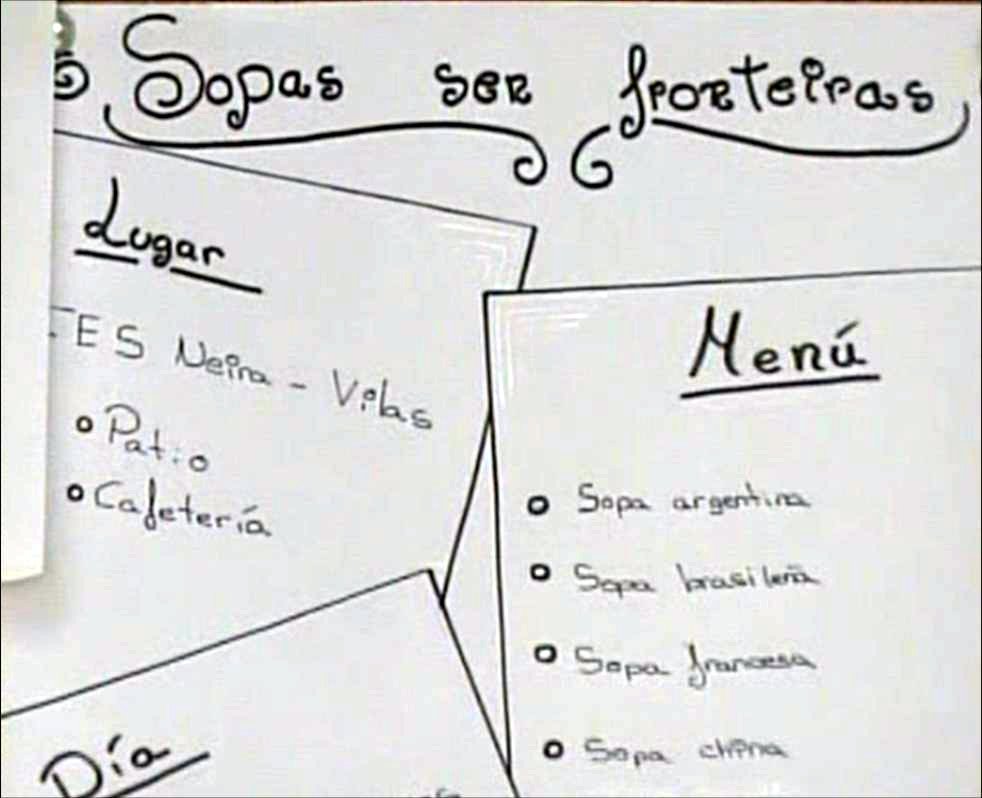 Sopas sen fronteiras
Lugar
IES Neira - Vilas
Patio
Cafetería
Menú
Sopa argentina
Sopa brasileña
Sopa francesa
Sopa china
Día